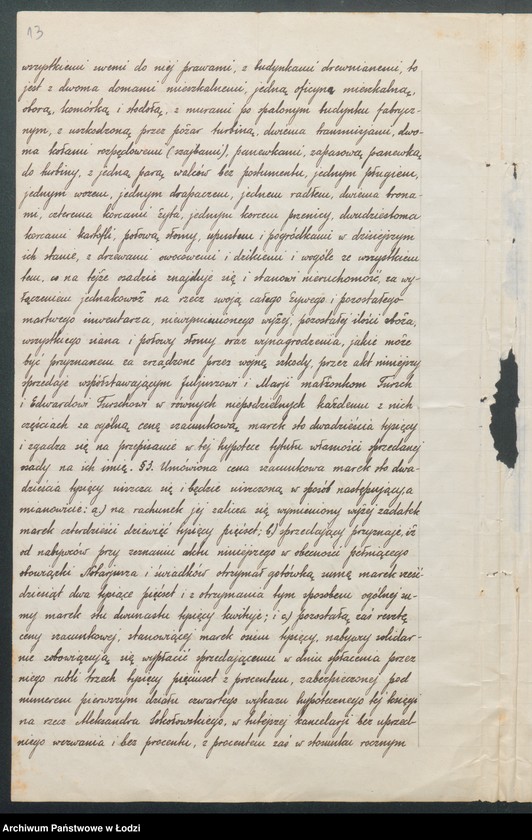 13
wszystkiemi swemi do niej prawami, z budynkami drewnianemi, to
jest z dwoma domami mieszkalnemi, jedną oficyną mieszkalną,
oborą, komórką i stodołą, z murami po spalonym budynku fabrycz-
nym, z uszkodzoną przez pożar turbiną, dwiema transmisjami, dwo-
ma kołami rozpędowemi (szajbami), panewkami, zapasową panewką
do turbiny, z jedną parą walców bez postumentu, jednym pługiem,
jednym wozem, jednym drapaczem, jednem radłem, dwiema brona-
mi, czterema korcami żyta, jednym korcem pszenicy, dwudziestoma
korcami kartofli, połową słomy, upustem i pogródkami w dzisiejszym
ich stanie, z drzewami owocowemi i dzikiemi i wogóle ze wszystkiem
tem, co na tejże osadzie znajduje się i stanowi nieruchomość, za wy-
łączeniem jednakowoż na rzecz swoją całego żywego i pozostałego
martwego inwentarza, niewymienionego wyżej, pozostałej ilości zboża,
wszystkiego siana i połowy słomy oraz wynagrodzenia, jakie może
być przyznanem za zrządzone przez wojnę szkody, przez akt niniejszy
sprzedaje współstawającym Juljuszowi i Marji małżonkom Fursch
i Edwardowi Furschowi w równych niepodzielnych każdemu z nich
częściach za ogólną cenę szacunkową marek sto dwadzieścia tysięcy
i zgadza się na przepisanie w tej hypotece tytułu własności sprzedanej
osady na ich imię. §3. Umówiona cena szacunkowa marek sto dwa-
dzieścia tysięcy uiszcza się i będzie uiszczoną w sposób następujący, a
mianowicie: a) na rachunek jej zalicza się wymieniony wyżej zadatek
marek czterdzieści dziewięć tysięcy pięćset; b) sprzedający przyznaje, iż
od nabywców przy zeznaniu aktu niniejszego w obecności pełniącego
obowiązki Notarjusza i świadków otrzymał gotówką sumę marek sześć-
dziesiąt dwa tysiące pięćset i z otrzymania tym sposobem ogólnej su-
my marek stu dwunastu tysięcy kwituje; i c) pozostałą zaś resztę
ceny szacunkowej, stanowiącej marek osiem tysięcy, nabywcy solidar-
nie zobowiązują się wypłacić sprzedającemu w dniu spłacenia przez
niego rubli trzech tysięcy pięciuset z procentem, zabezpieczonej pod
numerem pierwszym działu czwartego wykazu hypotecznego tej księgi
na rzecz Aleksandra Sokołowskiego, w tutejszej kancelarji bez uprzed-
niego wezwania i bez procentu, z procentem zaś w stosunku rocznym
Archiwum Państwowe w Łodzi